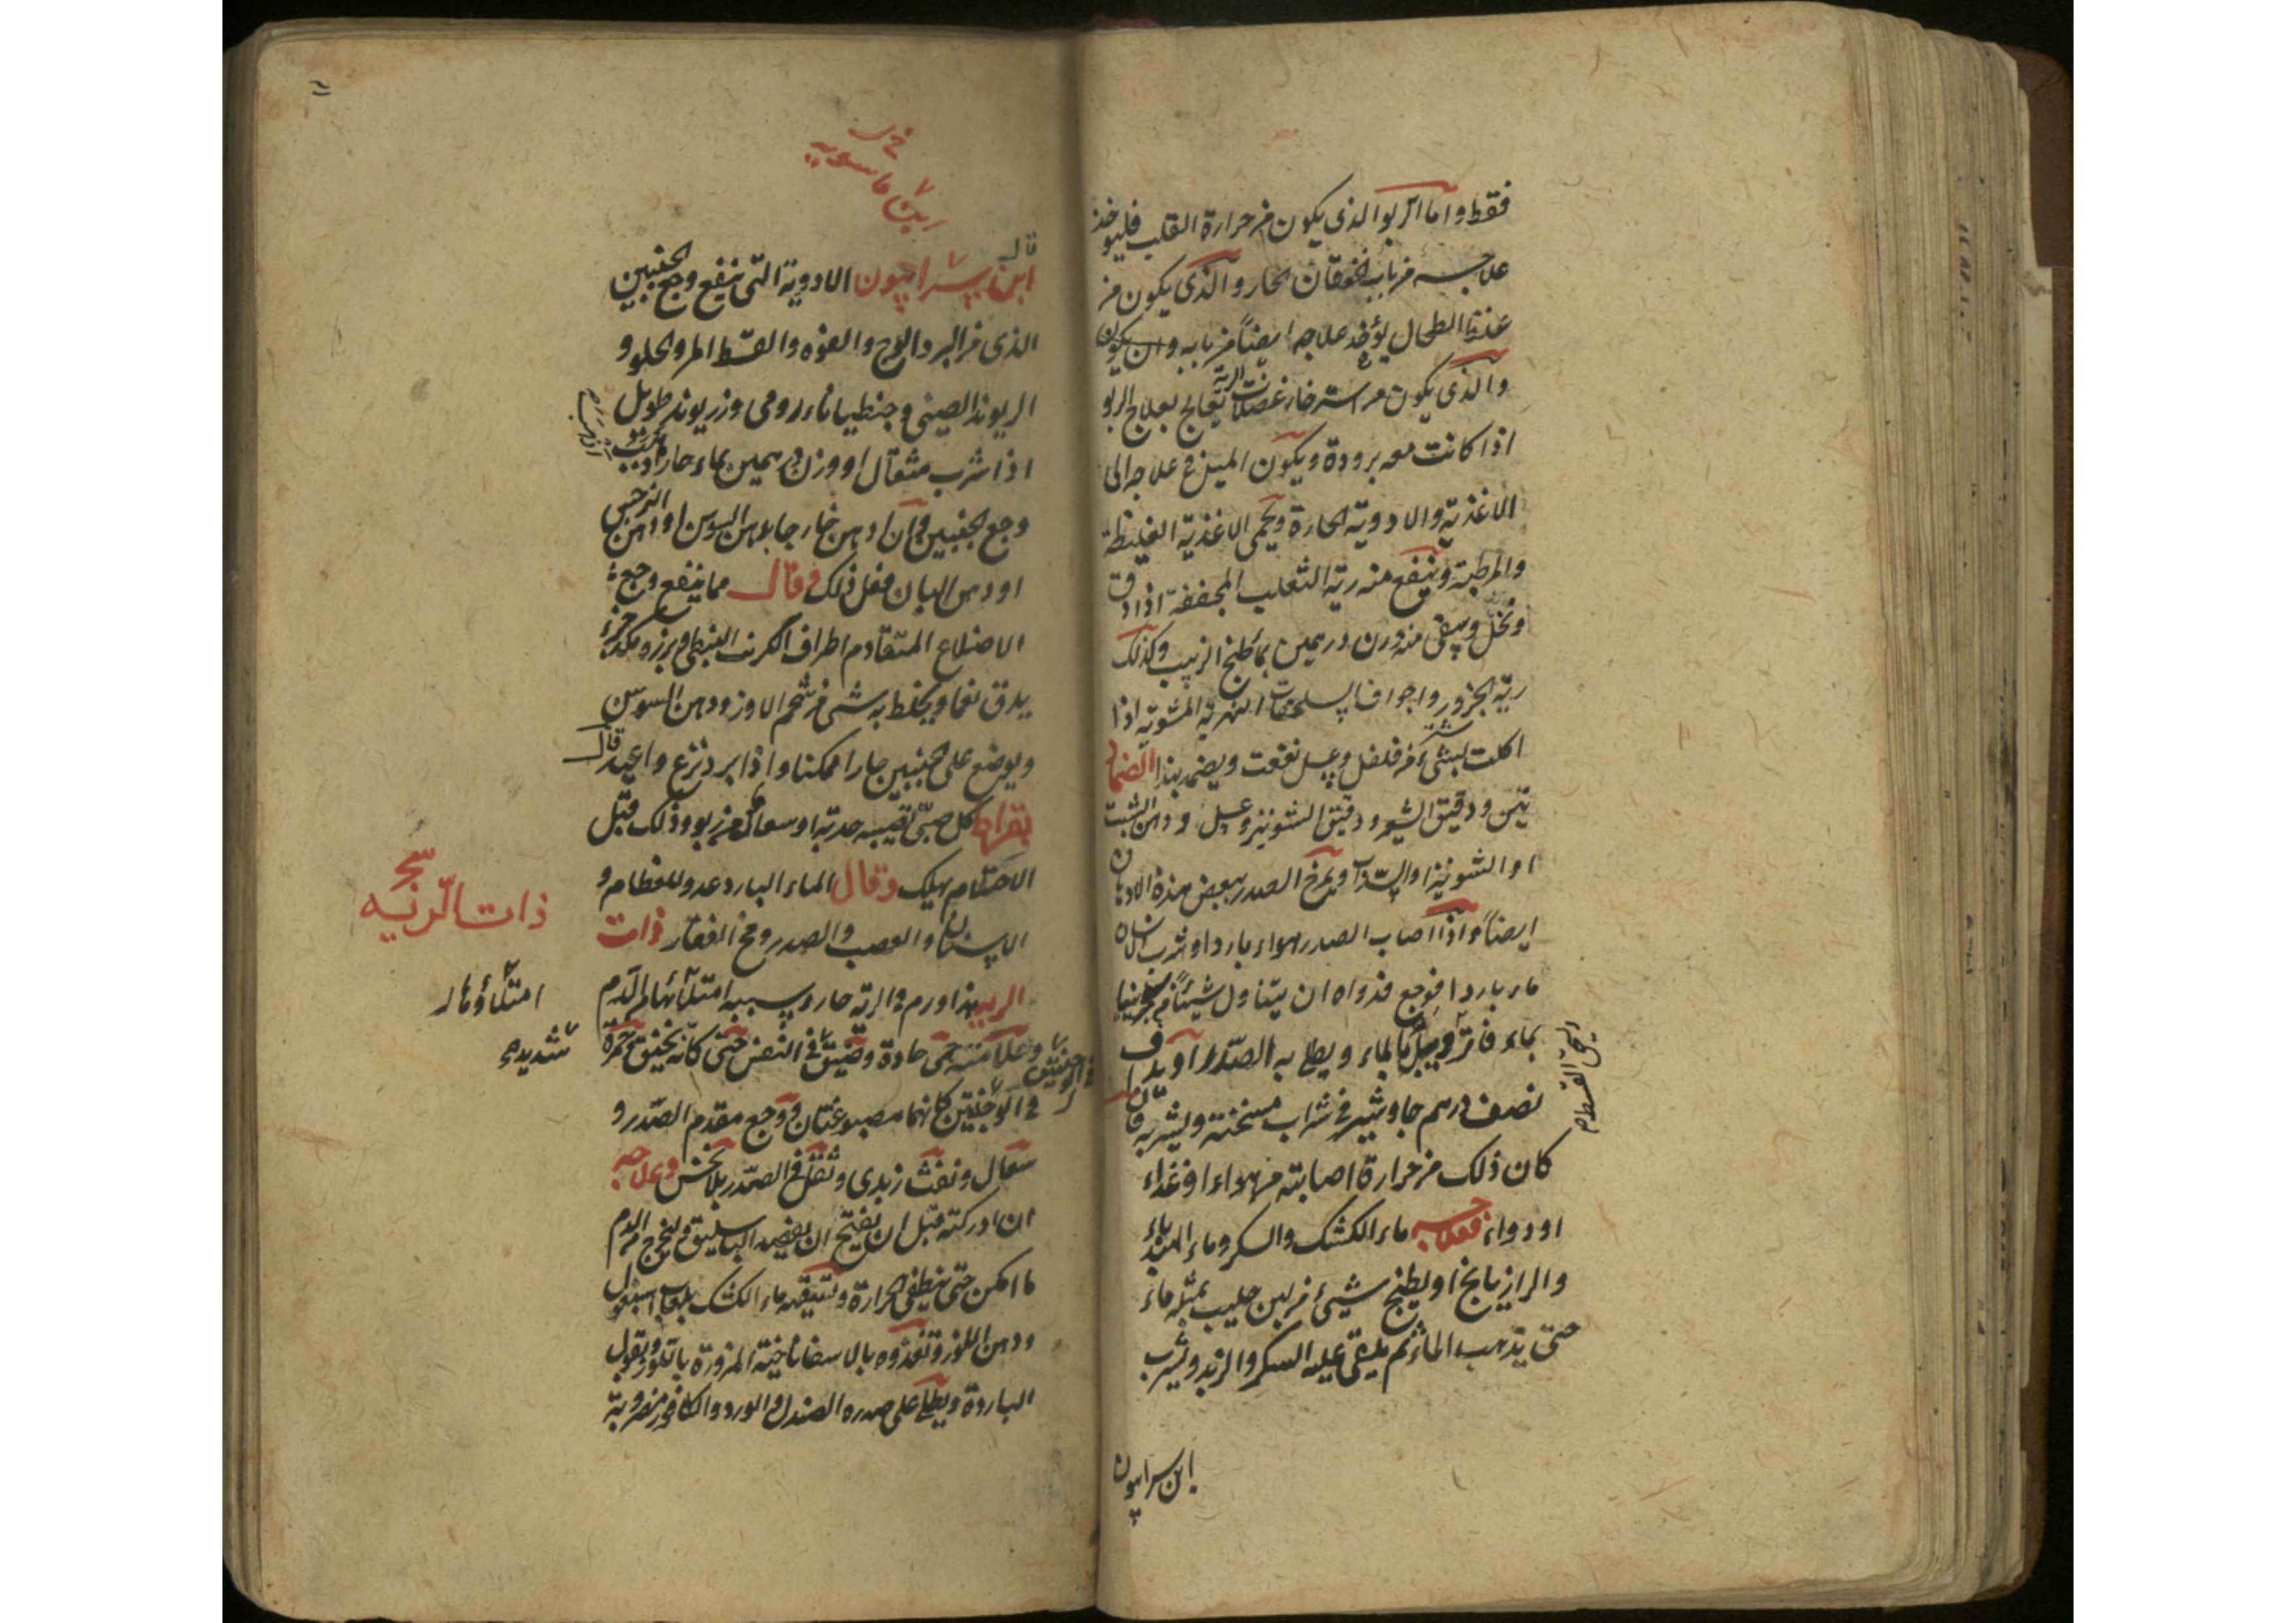 فقط واما الربو الذى يكون من حرارة القلب فليوخذ
علاجه من باب الخفقان الحار والذى يكون من
الطحال يؤخذ علاجه ايضاً من بابه وان يكون
والذى يكون من استرخاء عضلات الرية يعالج بعلاج الربو
اذا كانت معه برودة ويكون الميل فى علاجه الى
الاغذية والادوية الحارة ويحمى الاغذية الغليظة
والمرطبة وينفع منه رية الثعلب المجففة اذا دق
ونخل وسقى منه وزن درهمين بماء طبخ الزبيب وكذلك
رية الجزور واجواف السلحفات النهرية المشوية اذا
اكلت بشىء من فلفل وعسل نفعت ويضمد بهذا الضماد
تين ودقيق الشعير ودقيق الشونيز وعسل ودهن الشبت
او الشونيز او السذاب ويمرخ الصدر ببعض هذه الادهان
ايضاً واذا اصاب الصدر هواء بارد او شرب انسان
ماء باردا فوجع فدواه ان يتناول شيئاً من
بماء فاتر ويبل بالماء ويطلى به الصدر او يداف
نصف درهم جاوشير فى شراب مسخنة ويشربه فان
كان ذلك من حرارة اصابته من هواء او غذاء
او دواء فعلاجه ماء الكشك والسكر وماء الهندباء
والرازيانج او يطبخ شىء من لبن حليب بمثله ماء
حتى يذهب الماء ثم يلقى عليه السكر والزبد ويشرب
ابن سرابيون
قال
ابن سرابيون الادوية التى ينفع وجع الجنبين
الذى من البرد الوج والفوه والقسط المر والحلو و
الريوند الصينى وجنطيانا رومى وزريوند طويل
اذا شرب مثقال او وزن درهمين بماء حار
وجع الجنبين فان ادهن خارجا بدهن السوسن او دهن النرجس
او دهن البان فعل ذلك وقال مما ينفع وجع
الاضلاع المتقادم اطراف الكرنب النبطى وبزره
يدق نعما ويخلط به شىء من شحم الاوز ودهن السوسن
ويوضع على الجنبين حارا ممكنا واذا برد نزع واعيد قال
بقراط كل صبى تصيبه حدبة او سعال من ربو وذلك قبل
الاحتلام يهلك وقال الماء البارد عدو للعظام و
الاسنان والعصب والصدر ومخ الفقار ذات
الريه هذا ورم فى الرية حار وسببه امتلائها من الدم
وعلامته حمى حادة وضيق فى النفس حتى كانه يختنق وحمرة
فى الوجنتين كانهما مصبوغتان ووجع مقدم الصدر و
سعال ونفث زبدى وثقل فى الصدر بلا نخس وعلاجه
ان ادركته قبل ان يفتح ان يفصد الباسليق ويخرج من الدم
ما امكن حتى ينطفى الحرارة وتسقيه ماء الكشك بلعاب اسبغول
ودهن اللوز وتغذوه بالاسفاناخية المزورة باللوز وبقول
الباردة ويطلى على صدره الصندل والورد والكافور مضروبة
ذات الرئيه
امتلاؤها
شديده